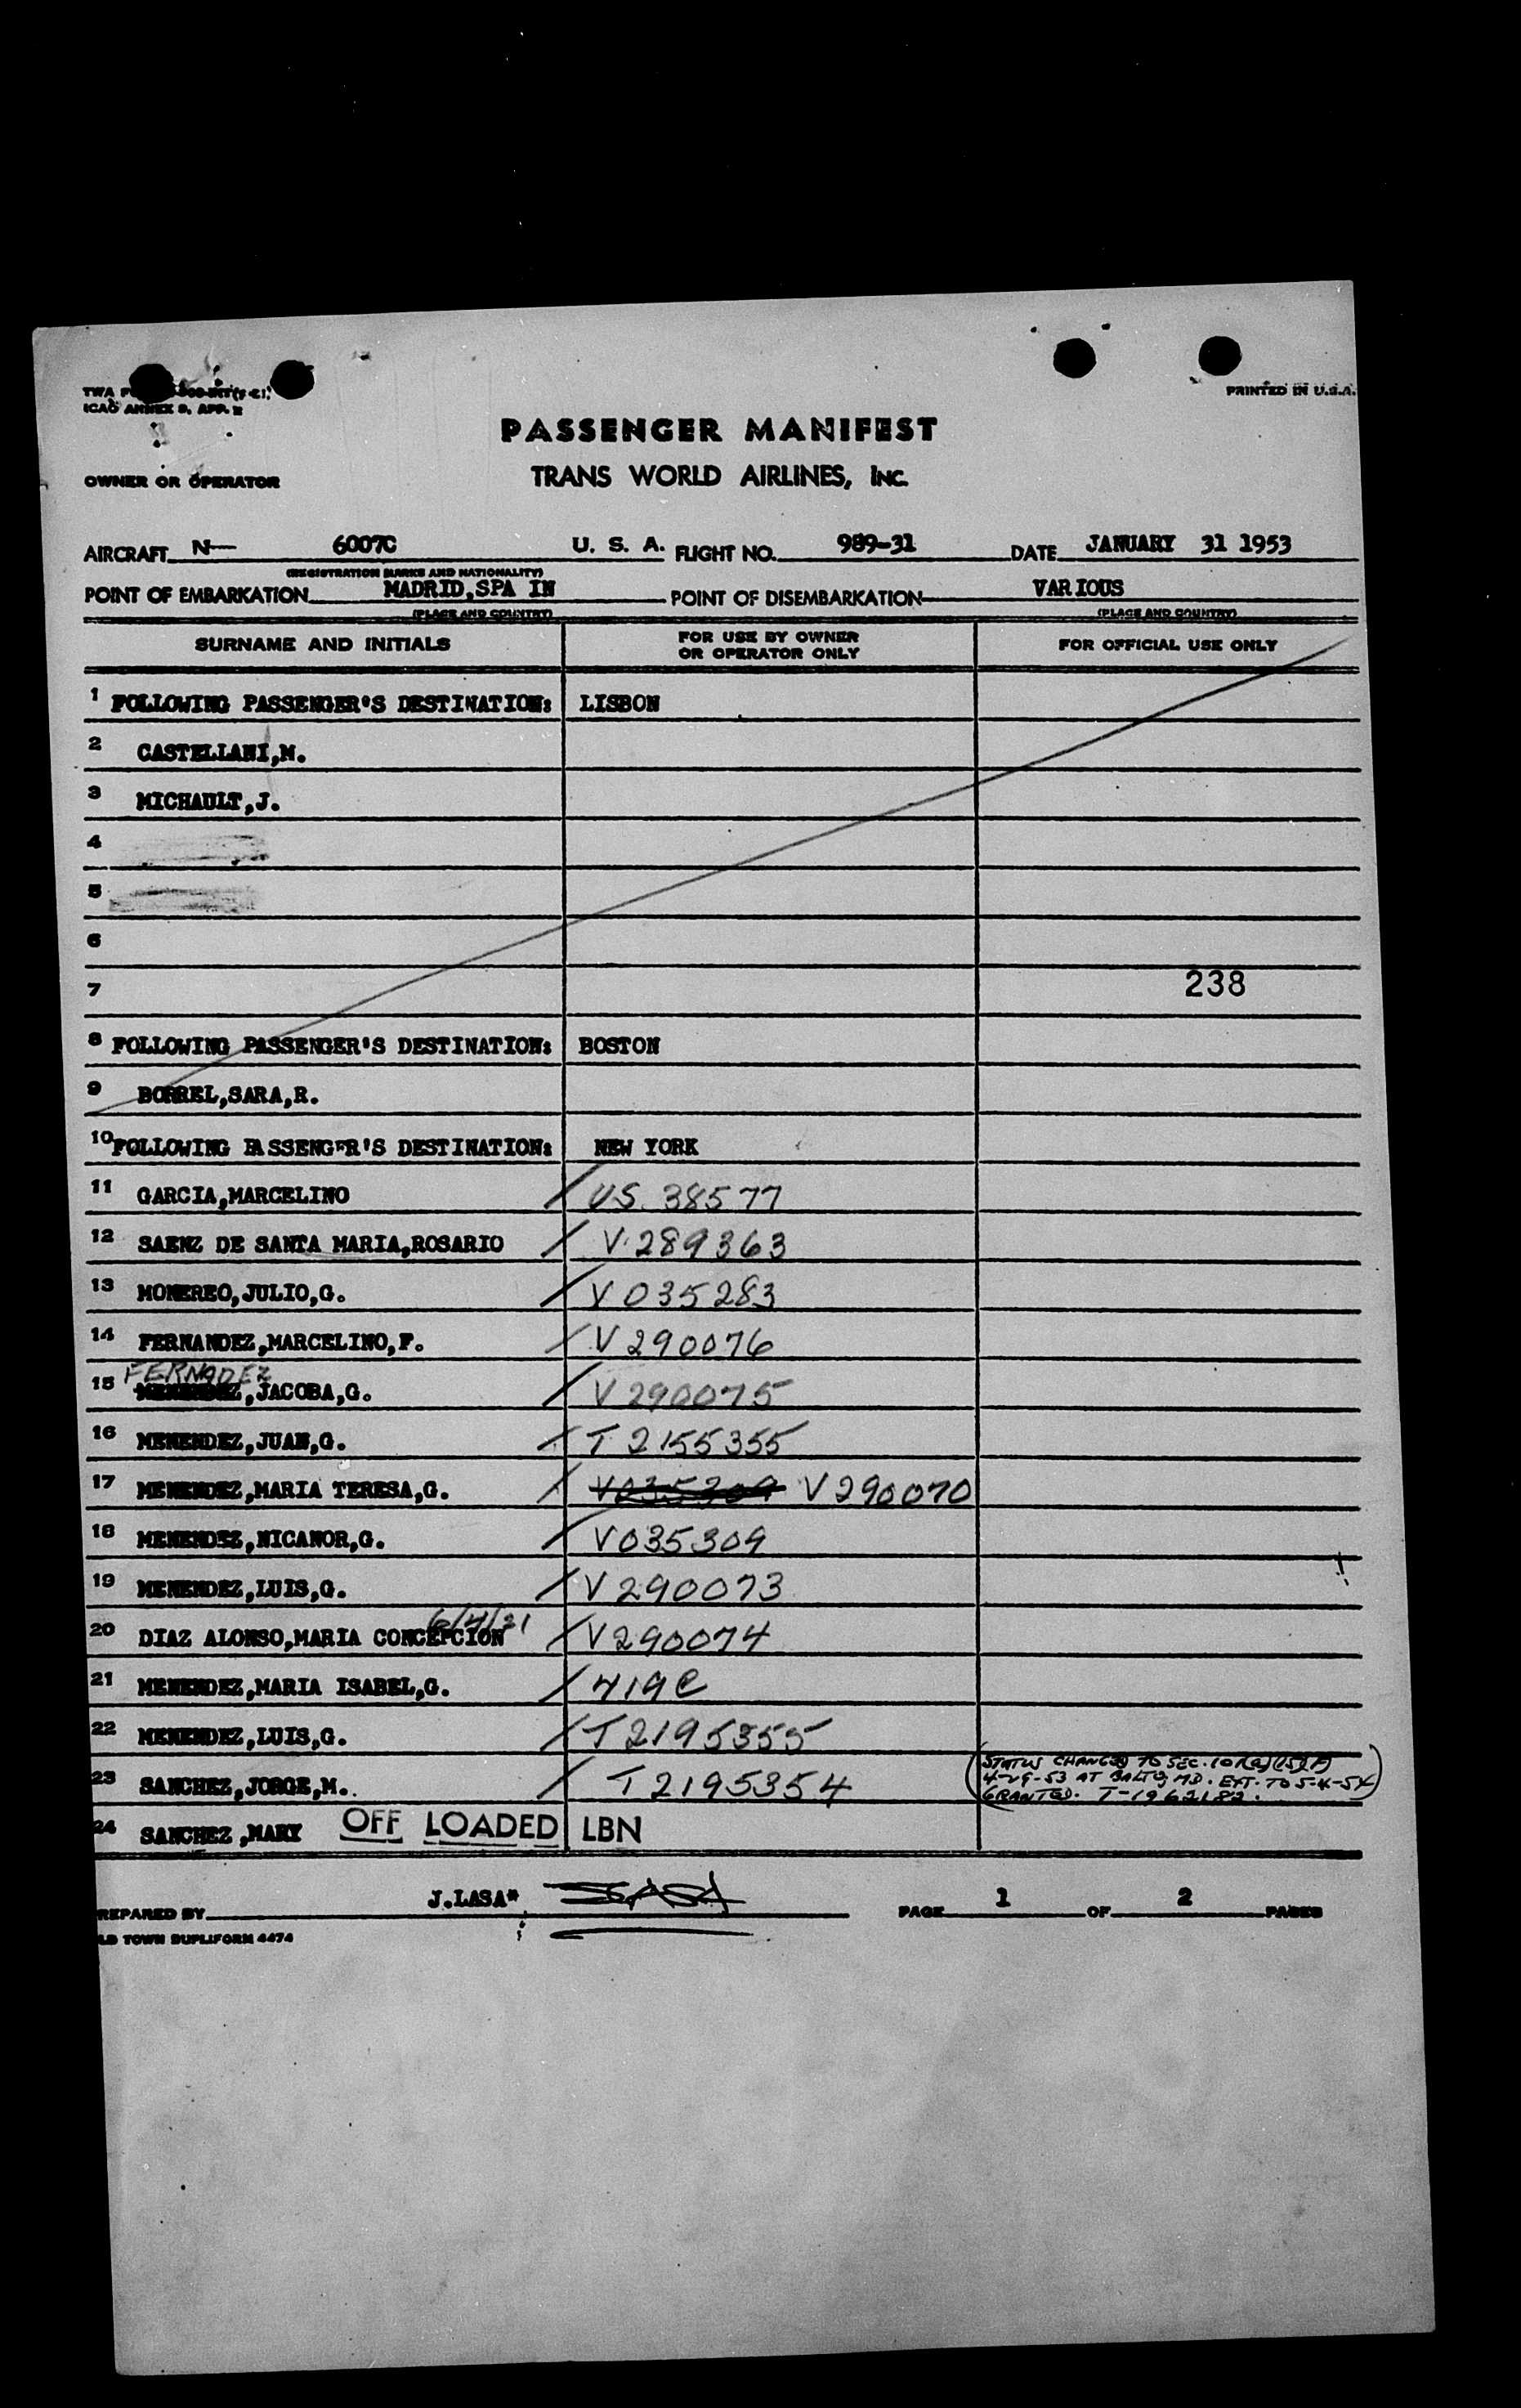 TWA
ICAO ANNEX 9, APP. 2
PRINTED IN U.S.A.
PASSENGER MANIFEST
OWNER OR OPERATOR TRANS WORLD AIRLINES, INC.
AIRCRAFT N- 6007C U. S. A. FLIGHT NO. 989-31 DATE JANUARY 31 1953
(REGISTRATION MARKS AND NATIONALITY)
POINT OF EMBARKATION MADRID,SPA IN POINT OF DISEMBARKATION VARIOUS
(PLACE AND COUNTRY) (PLACE AND COUNTRY)
SURNAME AND INITIALS FOR USE BY OWNER OR OPERATOR ONLY FOR OFFICIAL USE ONLY
1 FOLLOWING PASSENGER'S DESTINATION: LISBON
2 CASTELLANI,M.
3 MICHAULT,J.
4
5
6
7 238
8 FOLLOWING PASSENGER'S DESTINATION: BOSTON
9 BORREL,SARA,R.
10 FOLLOWING PASSENGER'S DESTINATION: NEW YORK
11 GARCIA,MARCELINO / US. 38577
12 SAENZ DE SANTA MARIA,ROSARIO / V.289363
13 MONEREO,JULIO,G. / V 035283
14 FERNANDEZ,MARCELINO,F. / V 290076
FERNADEZ
15 MENENDEZ,JACOBA,G. / V 290075
16 MENENDEZ,JUAN,G. / T 2155355
17 MENENDEZ,MARIA TERESA,G. / V035309 V290070
18 MENENDEZ,NICANOR,G. / V035309
19 MENENDEZ,LUIS,G. / V290073
6/4/31
20 DIAZ ALONSO,MARIA CONCEPCION / V290074
21 MENENDEZ,MARIA ISABEL,G. / 419C
22 MENENDEZ,LUIS,G. / T2195355
23 SANCHEZ,JORGE,M. / T 2195354
(STATUS CHANGED TO SEC.
4-29-53 AT BALTO MD. EXT. TO 5-4-54
GRANTED. T-1962182.)
24 SANCHEZ,MARY OFF LOADED LBN
REPARED BY J.LASA* PAGE 1 OF 2 PAGES
LD TOWN DUPLIFORM 4474